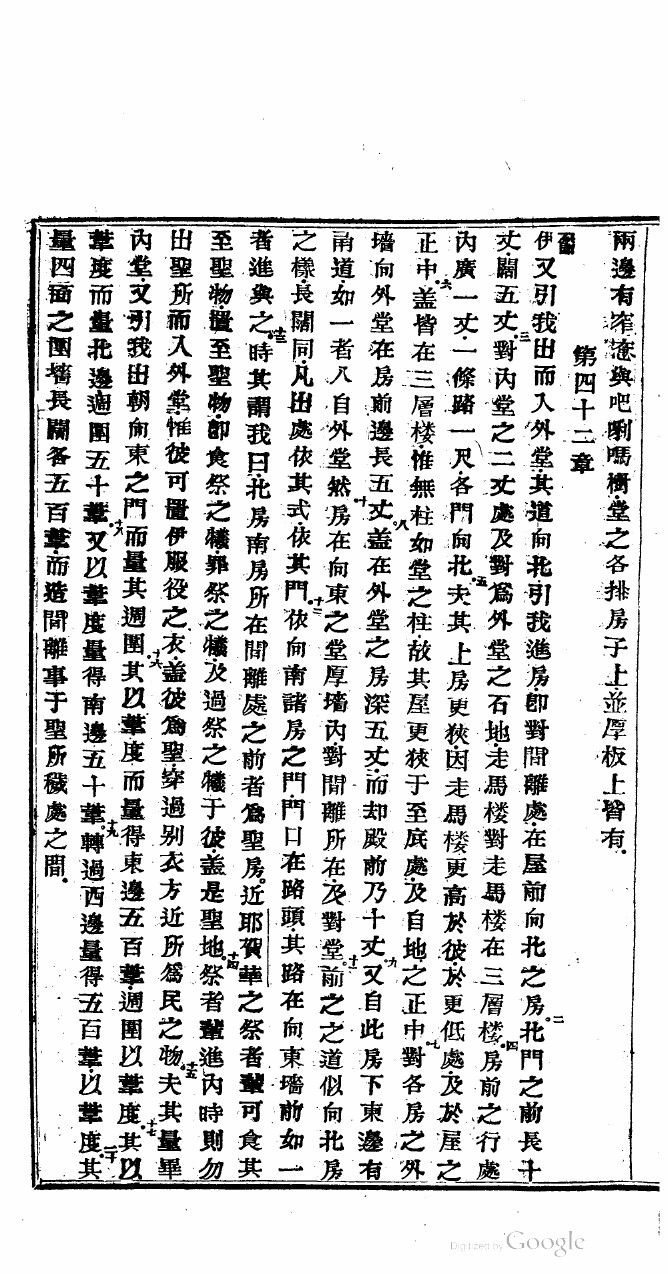 兩邊有窄窓與吧唎嗎樹堂之各排房子上並厚板上皆有
第四十二章
伊又引我出而入外堂其道向北引我進房卽對間離處在屋前向北之房二北門之前長十
丈濶五丈三對內堂之二丈處及對爲外堂之石地走馬樓對走馬樓在三層樓四房前之行處
內廣一丈一條路一尺各門向北五夫其上房更狹因走馬樓更高於彼於更低處及於屋之
正中六盖皆在三層楼惟無柱如堂之柱故其屋更狹于至底處及自地之正中七對各房之外
墻向外堂在房前邊長五丈八盖在外堂之房深五丈而却殿前乃十丈九又自此房下東邊有
甬道如一者入自外堂十然房在向東之堂厚墻內對間離所在及對堂十一前之之道似向北房
之樣長闊同凡出處依其式依其門十二依向南諸房之門門口在路頭其路在向東墻前如一
者進與之時十三其謂我曰北房南房所在間離處之前者爲聖房近耶賀華之祭者輩可食其
至聖物置至聖物卽食祭之犧罪祭之犧及過祭之犧于彼盖是聖地十四祭者輩進內時則勿
出聖所而入外堂惟彼可置伊服役之衣盖彼爲聖穿過别衣方近所爲民之物十五夫其量畢
內堂又引我出朝向東之門而量其週圍十六其以葦度而量得東邊五百葦週圍以葦度十七其以
葦度而量北邊週圍五十葦十八又以葦度量得南邊五十葦十九轉過西邊量得五百葦以葦度二十其
量四面之圍墻長闊各五百葦而造間離事于聖所穢處之間
Digitized by Google